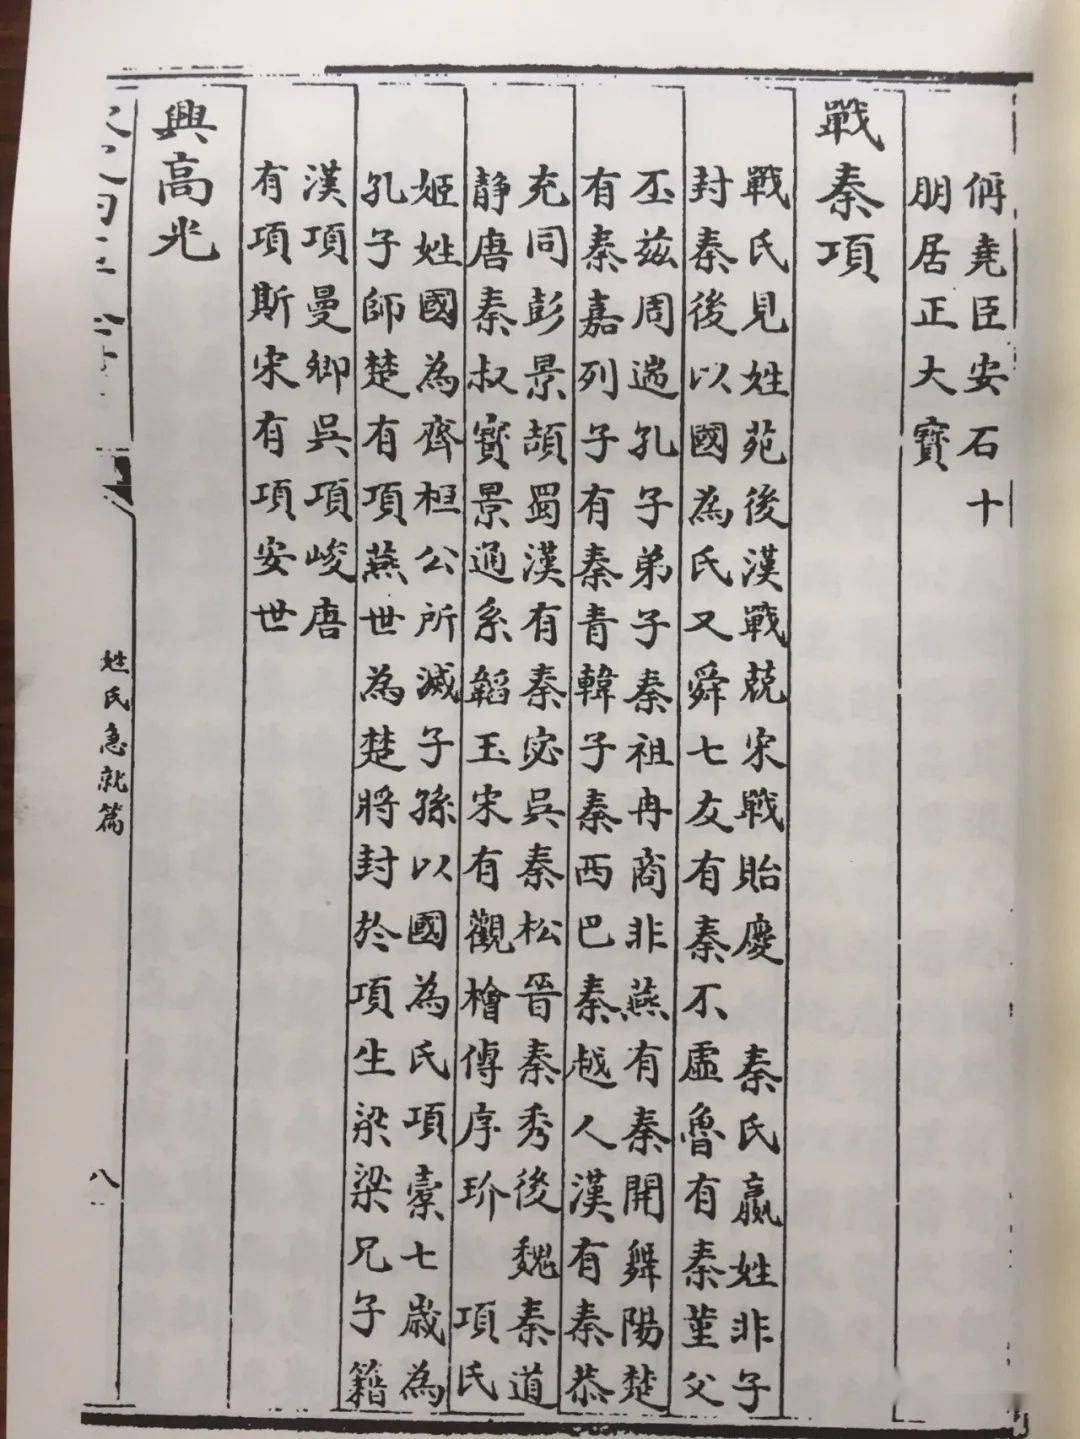 俯堯臣安石十
朋居正大寶
戰秦項
戰氏見姓苑後漢戰兢宋戰貽慶 秦氏嬴姓非子
封秦後以國為氏又舜七友有秦不虛魯有秦堇父
丕兹周遄孔子弟子秦祖冉商非燕有秦開舞陽楚
有秦嘉列子有秦青韓子秦西巴秦越人漢有秦恭
充同彭景頡蜀漢有秦宓吳秦松晉秦秀後魏秦道
静唐秦叔寶景通系韜玉宋有觀檜傅序玠 項氏
姬姓國為齊桓公所滅子孫以國為氏項橐七歲為
孔子師楚有項燕世為楚將封於項生梁梁兄子籍
漢項曼卿吳項峻唐
有項斯宋有項安世
興高光
姓氏急就篇
八